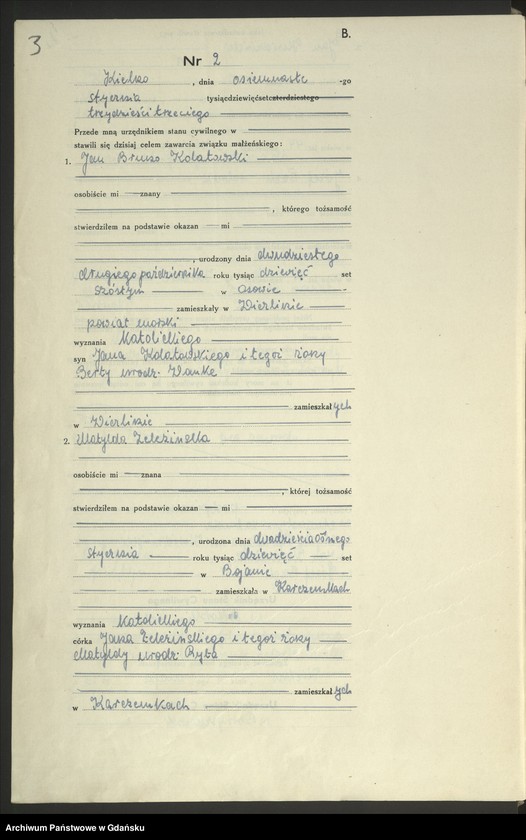 3
B.
Nr 2
Kielno, dnia osiemnaste -go
stycznia tysiącdziewięćsetczterdziestego
trzydziesti trzeciego
Przede mną urzędnikiem stanu cywilnego w
stawili się dzisiaj celem zawarcia związku małżeńskiego:
1. Jan Bruno Kolatowski
osobiście mi znany
, którego tożsamość
stwierdziłem na podstawie okazan mi
, urodzony dnia dwudziestego
drugiego października roku tysiąc dziewięć set
szóstym w Osowie
zamieszkały w Wiczlinie
powiat morski
wyznania katolickiego
syn Jana Kolatowskiego i tegoż żony
Berty urodz. Wanke
zamieszkałych
w Wiczlinie
2. Matylda Zelezinska
osobiście mi znana
, której tożsamość
stwierdziłem na podstawie okazan mi
, urodzona dnia dwadzieścia ósmego
stycznia roku tysiąc dziewięć set
w Bojanie
zamieszkała w Karczemkach
wyznania katolickiego
córka Jana Zelezińskiego i tegoż żony
Matyldy urodz. Ryba
zamieszkałych
w Karczemkach
Archiwum Państwowe w Gdańsku